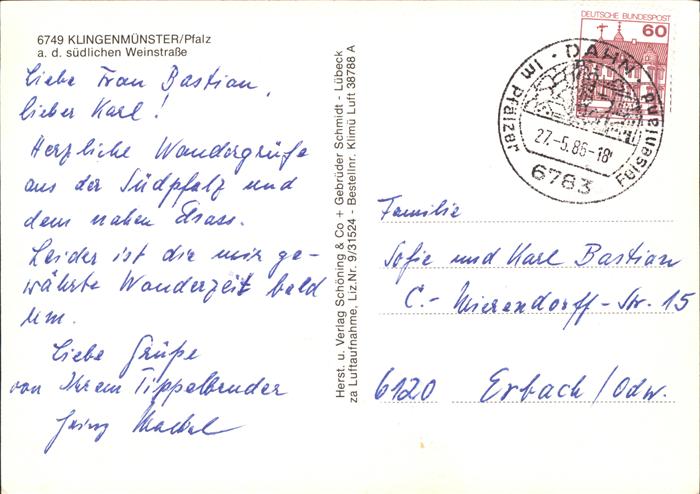 6749 KLINGENMÜNSTER/Pfalz
a. d. südlichen Weinstraße
Liebe Frau Bastian,
lieber Karl!
Herzliche Wandergrüße
aus der Südpfalz und
dem nahen Elsass.
Leider ist die mir ge-
währte Wanderzeit bald
um.
Liebe Grüße
von Ihrem Tippelbruder
Heinz
Herst. u. Verlag Schöning & Co + Gebrüder Schmidt - Lübeck
za Luftaufnahme, Liz.Nr. 9/31524 - Bestellnr. Klimü Luft 38788 A
DEUTSCHE BUNDESPOST
60
IM PfälzER · DAHN · FElsenland
27.-5.86-18
6783
Familie
Sofie und Karl Bastian
C.- Mierendorff-Str. 15
6120 Erbach/Odw.